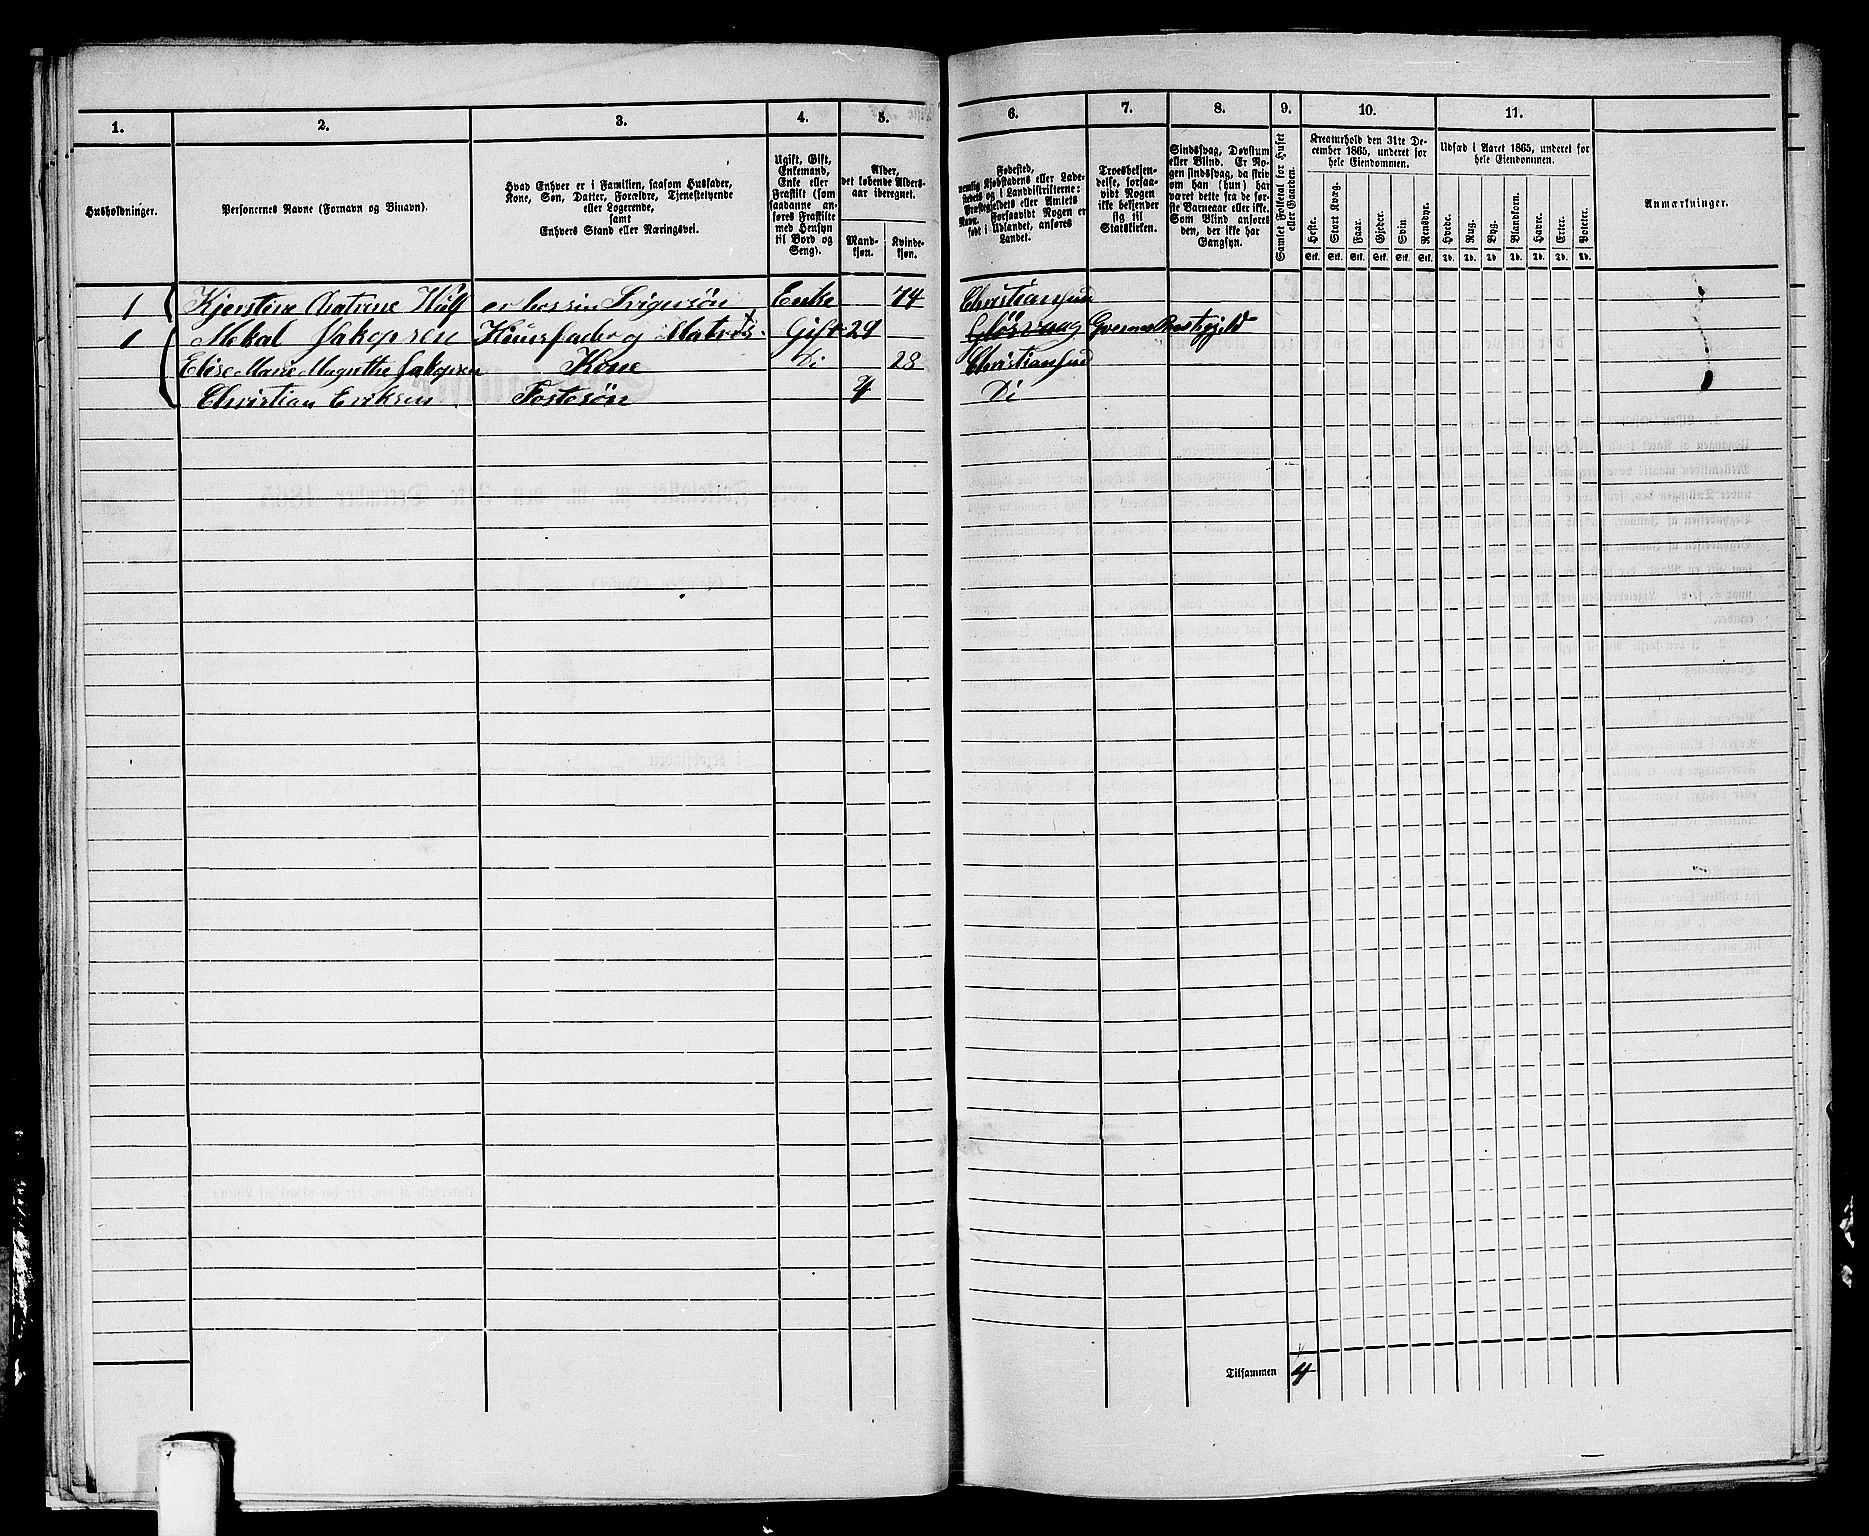 1. 2. 3. 4. 5. 6. 7. 8. 9. 10. 11.
Husholdninger.
Personernes Navne (Fornavn og Tilnavn).
Hvad Enhver er i Familien, saasom Husfader,
Kone, Søn, Datter, Forældre, Tjenestetyende
eller Logerende,
samt
Enhvers Stand eller Næringsvei.
Ugift, Gift,
Enkemand,
Enke eller
Fraskilt (som
saadanne an-
føres Fraskilte
med Hensyn
til Bord og
Seng).
Alder,
det løbende Alders-
aar iberegnet.
Mand-
kjøn.
Kvinde-
kjøn.
Fødested,
nemlig Kjøbstadens eller Lade-
stedets og i Landdistrikterne:
Præstegjeldets eller Amtets
Navn. Forsaavidt Nogen er
født i Udlandet, anføres
Landet.
Troesbekjen-
delse, forsaa-
vidt Nogen
ikke bekjender
sig til
Statskirken.
Sindssvag, Døvstum
eller Blind. Er No-
gen sindssvag, da skriv
om han (hun) har
været dette fra de før-
ste Barneaar eller ikke.
Som Blind anføres
den, der ikke har
Gangsyn.
Samlet Folketal for Huset
eller Gaarden.
Kreaturhold den 31te De-
cember 1865, underet for
hele Eiendommen.
Heste.
Stort Kvæg.
Faar.
Gjeder.
Svin
Rensdyr.
Stk. Stk. Stk. Stk. Stk. Stk.
Udsæd i Aaret 1865, underet for
hele Eiendommen.
Hvede.
Rug.
Byg.
Blandkorn.
Havre.
Erter.
Poteter.
Td. Td. Td. Td. Td. Td. Td.
Anmærkninger.
1 Kjerstine Katrine Wulf er hos sin Svigersön Enke 74 Christiansund
1 Mekal Jakopsen Huusfader og Matros Gift 29 Præstegjeld
Elise Marie Magrethe Jakopsen Kone Di 28 Christiansund
Christian Eriksen Fostesön 4 Di
Tilsammen 4